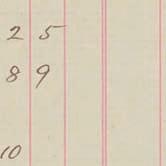 2 5
8 9
10